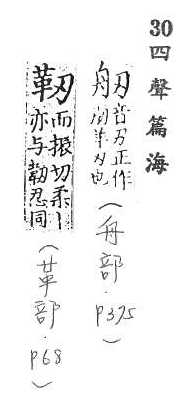 30 四聲篇海
音刃正作
(舟部.P375)
靭 而振切柔
亦与韌忍同
(革部.P68)